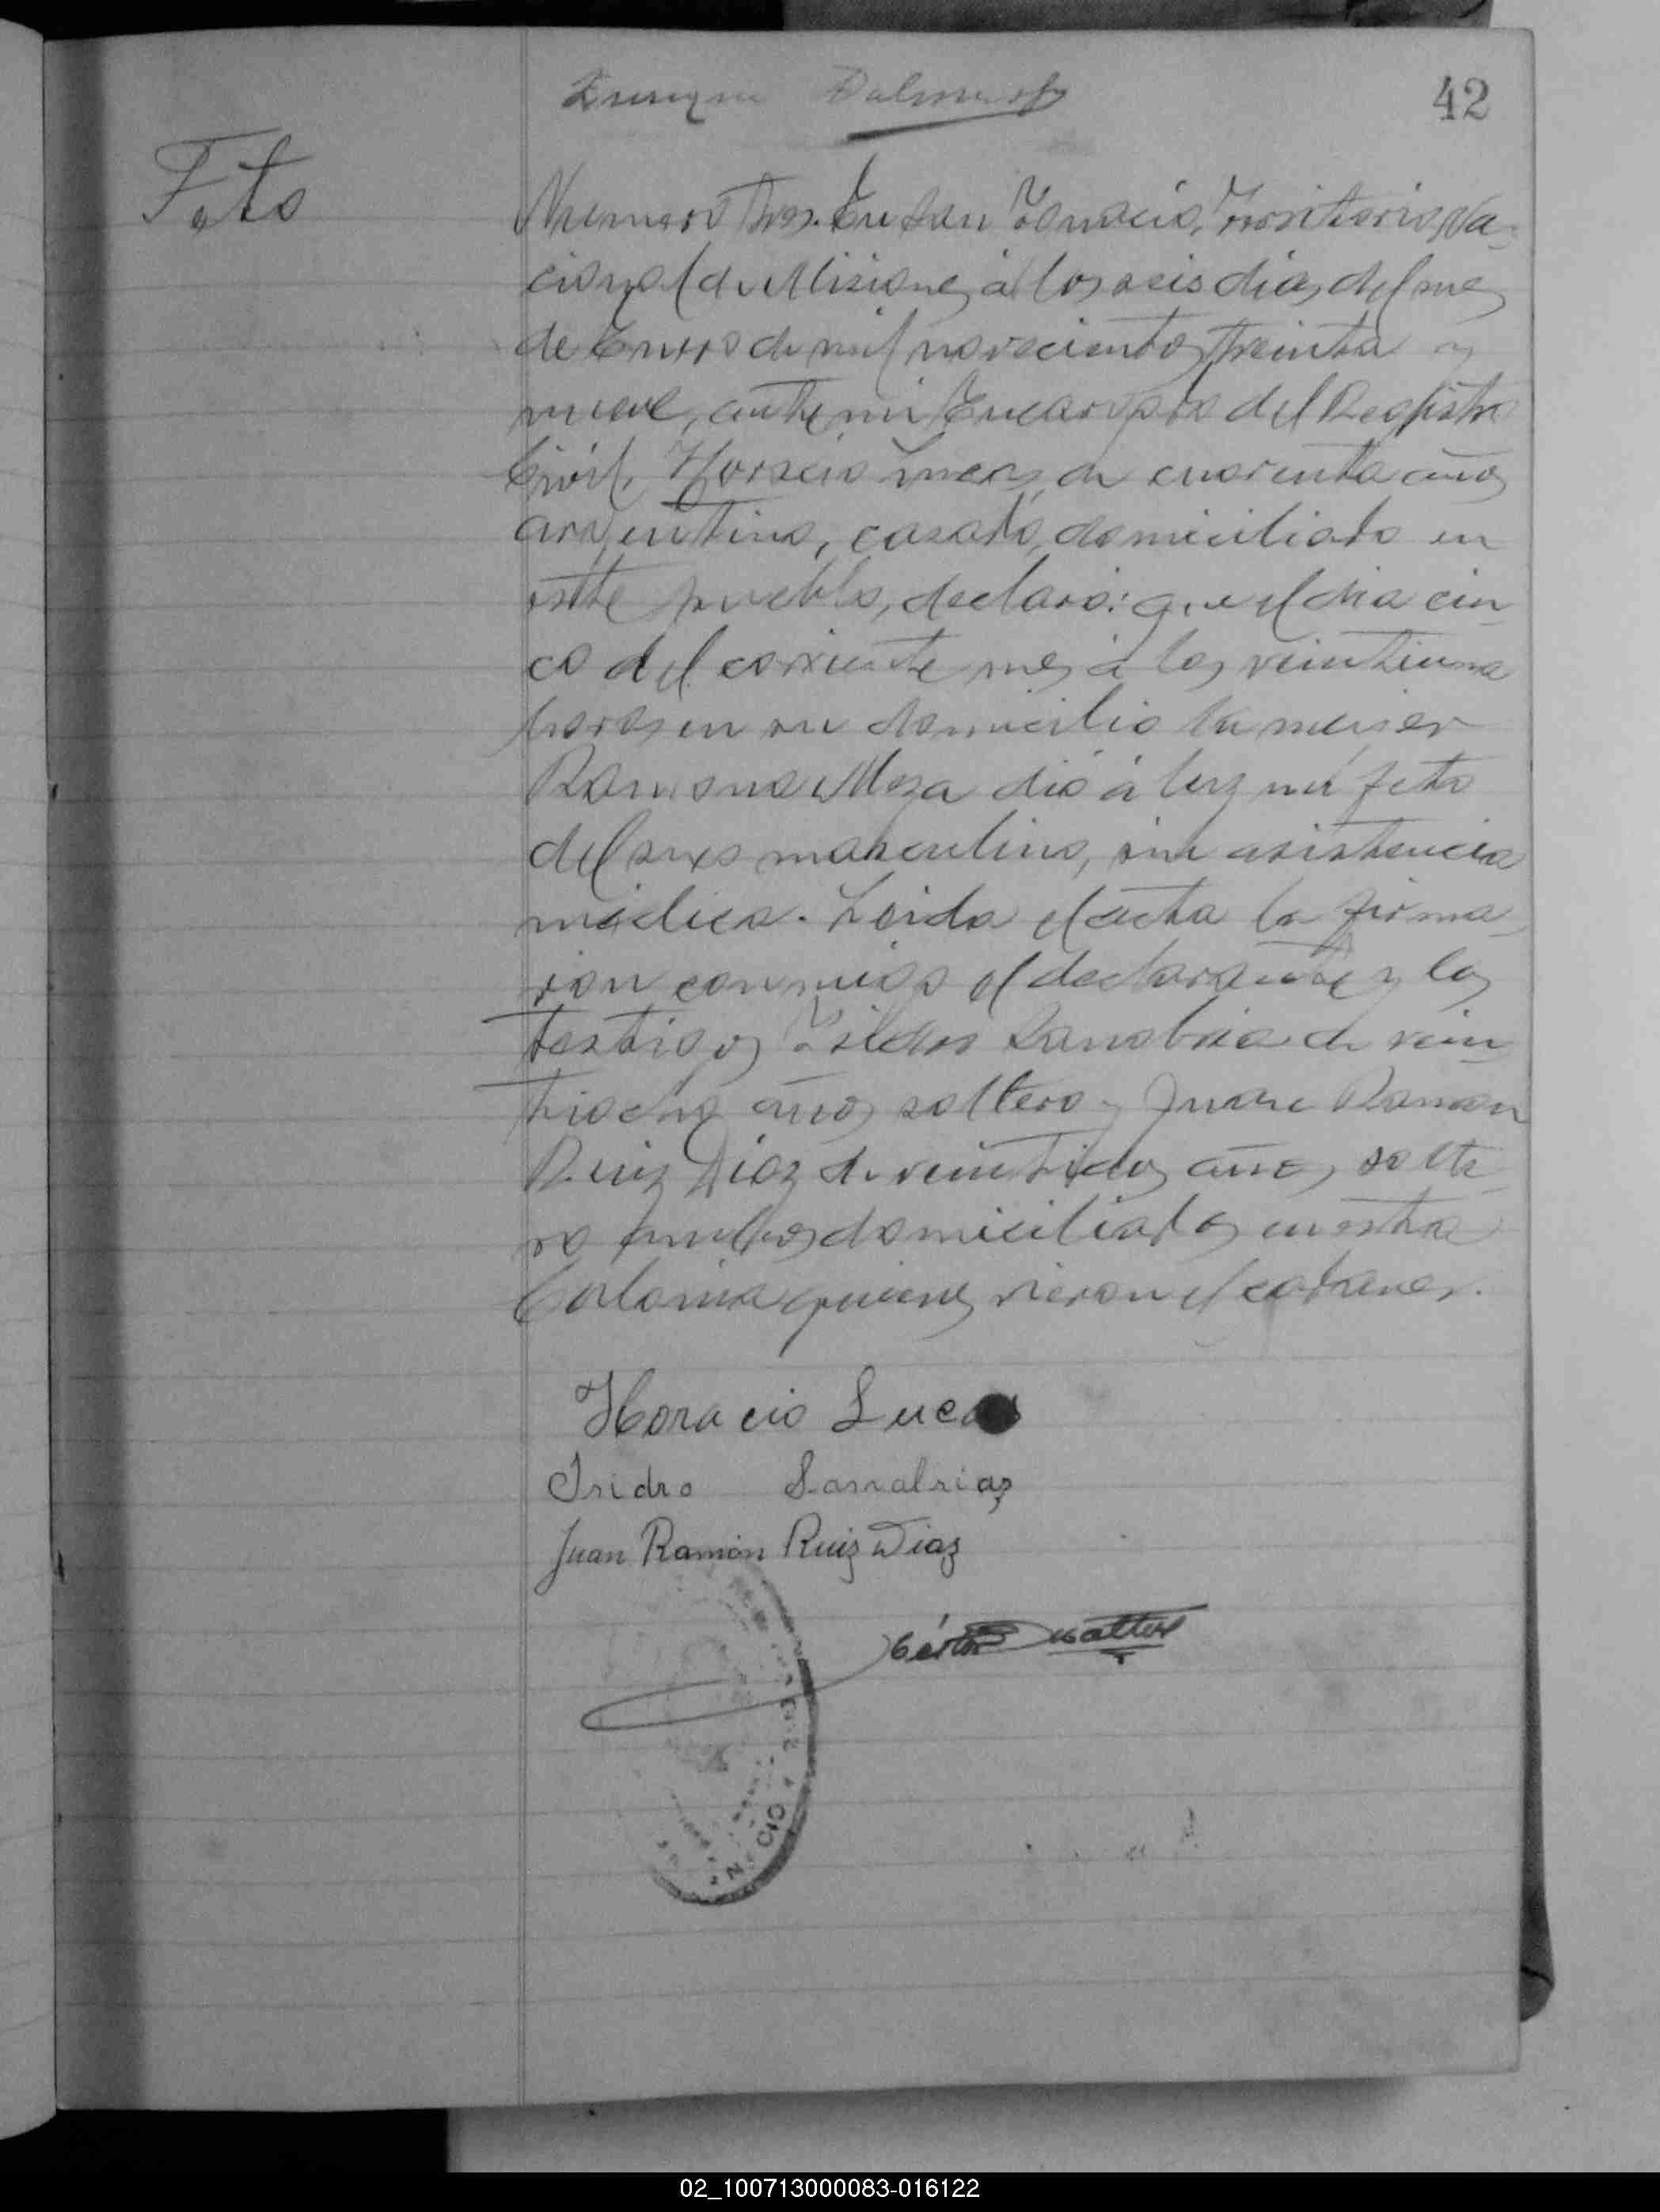 42
Feto
Numero Tres. En San Ignacio, Territorio Na-
cional de Misiones á los seis dias del mes
de Enero de mil novecientos treinta y
nueve, ante mi Encargado del Registro
Civil, Horacio Lucas, de cuarenta años
argentino, casado, domiciliado en
este pueblo, declaró: que el dia cin-
co del corriente mes á las veintiuna
horas en su domicilio la mujer
Ramona Meza dió á luz un feto
del sexo masculino, sin asistencia
médica. Leida el acta la firma-
ron conmigo el declarante y los
testigos Isidro Sanabria de vein-
tiocho años soltero y Juan Ramon
Ruiz Diaz de veintidos años, solte-
ro ambos domiciliados en esta
Colonia quienes vieron el cadaver.
Horacio Lucas
Isidro Sanabrias
Juan Ramón Ruiz Diaz
02_100713000083-016122